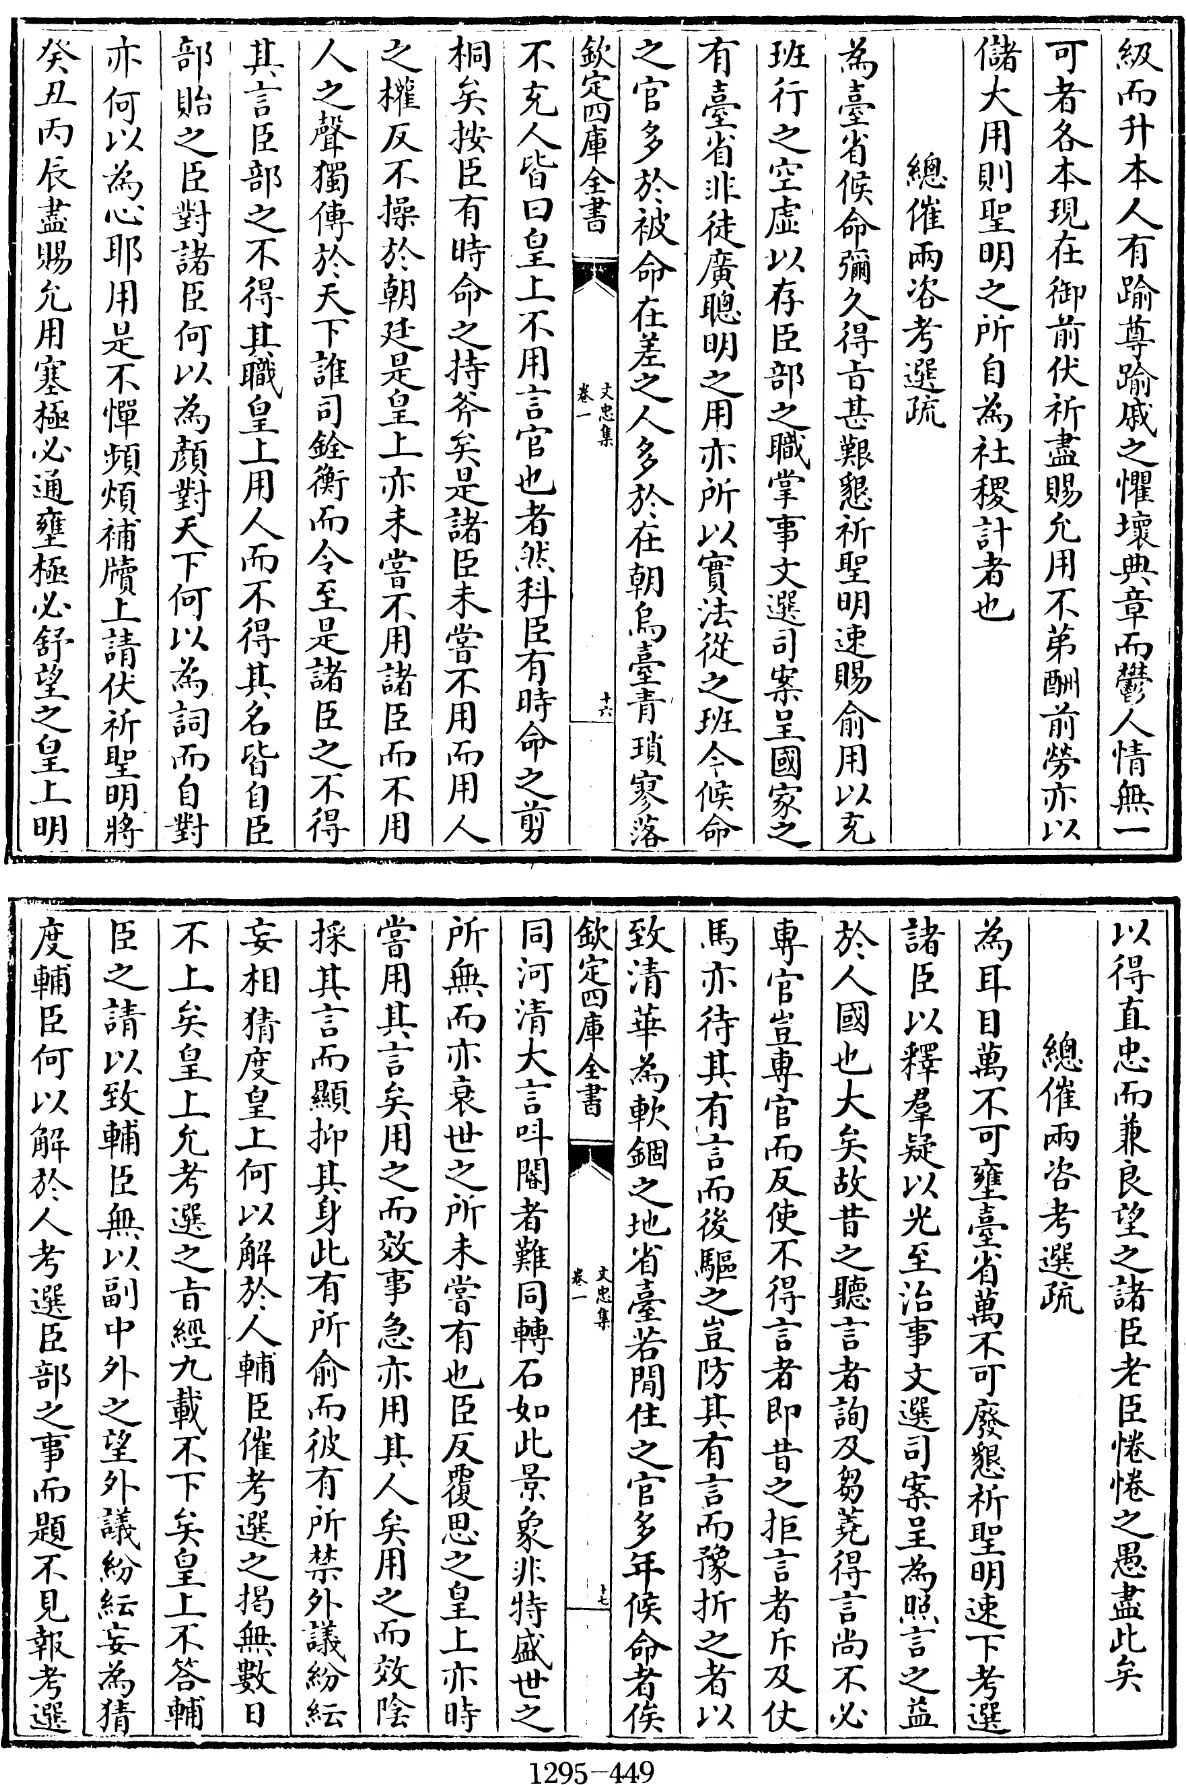 級而升本人有踰尊踰戚之懼壞典章而鬱人情無一
可者各本現在御前伏祈盡賜允用不第酬前勞亦以
儲大用則聖明之所自為社稷計者也
總催兩咨考選疏
為臺省候命彌久得旨甚艱懇祈聖明速賜俞用以充
班行之空虛以存臣部之職掌事文選司案呈國家之
有臺省非徒廣聰明之用亦所以實法從之班今候命
之官多於被命在差之人多於在朝烏臺青瑣寥落
欽定四庫全書
文忠集
卷一
十六
不充人皆曰皇上不用言官也者然科臣有時命之剪
桐矣按臣有時命之持斧矣是諸臣未嘗不用而用人
之權反不操於朝廷是皇上亦未嘗不用諸臣而不用
人之聲獨傳於天下誰司銓衡而令至是諸臣之不得
其言臣部之不得其職皇上用人而不得其名皆自臣
部貽之臣對諸臣何以為顏對天下何以為詞而自對
亦何以為心耶用是不憚頻煩補牘上請伏祈聖明將
癸丑丙辰盡賜允用塞極必通壅極必舒望之皇上明
以得直忠而兼良望之諸臣老臣惓惓之愚盡此矣
總催兩咨考選疏
為耳目萬不可壅臺省萬不可廢懇祈聖明速下考選
諸臣以釋羣疑以光至治事文選司案呈為照言之益
於人國也大矣故昔之聽言者詢及芻蕘得言尚不必
專官豈專官而反使不得言者即昔之拒言者斥及仗
馬亦待其有言而後驅之豈防其有言而豫折之者以
致清華為軟錮之地省臺若閒住之官多年候命者俟
欽定四庫全書
文忠集
卷一
十七
同河清大言呌閽者難同轉石如此景象非特盛世之
所無而亦衰世之所未嘗有也臣反覆思之皇上亦時
嘗用其言矣用之而效事急亦用其人矣用之而效陰
採其言而顯抑其身此有所俞而彼有所禁外議紛紜
妄相猜度皇上何以解於人輔臣催考選之揭無數日
不上矣皇上允考選之旨經九載不下矣皇上不答輔
臣之請以致輔臣無以副中外之望外議紛紜妄為猜
度輔臣何以解於人考選臣部之事而題不見報考選
1295-449